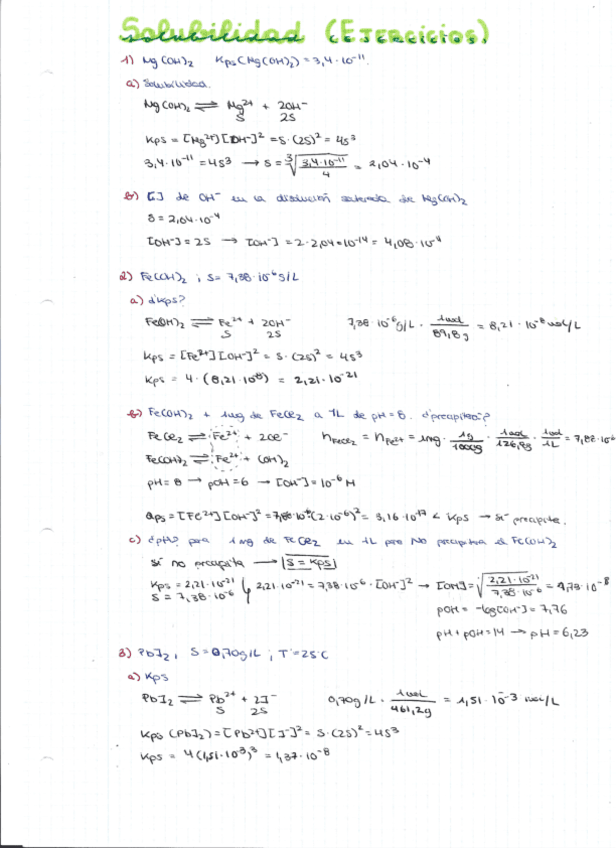 Solubilidad (Ejercicios)
1) Mg(OH)₂ Kps(Mg(OH)₂) = 3,4·10⁻¹¹
a) Solubilidad.
Mg(OH)₂ ⇌ Mg²⁺ + 2OH⁻
S 2S
Kps = [Mg²⁺][OH⁻]² = S·(2S)² = 4S³
3,4·10⁻¹¹ = 4S³ → S = ∛(3,4·10⁻¹¹/4) = 2,04·10⁻⁴
b) [] de OH⁻ en la disolución saturada de Mg(OH)₂
S = 2,04·10⁻⁴
[OH⁻] = 2S → [OH⁻] = 2·2,04·10⁻¹⁴ = 4,08·10⁻⁴
2) Fe(OH)₂ ; S = 7,38·10⁻⁶ g/L
a) ¿Kps?
Fe(OH)₂ ⇌ Fe²⁺ + 2OH⁻ 7,38·10⁻⁶ g/L · 1mol/89,8g = 8,21·10⁻⁸ mol/L
S 2S
Kps = [Fe²⁺][OH⁻]² = S·(2S)² = 4S³
Kps = 4·(8,21·10⁸) = 2,21·10⁻²¹
b) Fe(OH)₂ + 1mg de FeCl₂ a 1L de pH = 8. ¿precipita?
FeCl₂ ⇌ Fe²⁺ + 2Cl⁻ nFeCl₂ = nFe²⁺ = 1mg · 1g/1000g · 1mol/126,8g · 1mol/1L = 7,88·10⁻⁶
Fe(OH)₂ ⇌ Fe²⁺ + (OH)₂
pH = 8 → pOH = 6 → [OH⁻] = 10⁻⁶ M
Qps = [Fe²⁺][OH⁻]² = 7,88·10⁻⁶(2·10⁻⁶)² = 3,16·10⁻¹⁷ < Kps → sí precipita.
c) ¿pH? para 1mg de FeCl₂ en 1L para NO precipitar el Fe(OH)₂
si no precipita → S = Kps
Kps = 2,21·10⁻²¹ 2,21·10⁻²¹ = 7,38·10⁻⁶·[OH⁻]² → [OH] = √(2,21·10⁻²¹/7,38·10⁻⁶) = 1,73·10⁻⁸
S = 7,38·10⁻⁶
pOH = -log[OH⁻] = 7,76
pH + pOH = 14 → pH = 6,23
3) PbI₂, S = 0,70g/L ; T = 25°C
a) Kps
PbI₂ ⇌ Pb²⁺ + 2I⁻ 0,70g/L · 1mol/461,2g = 1,51·10⁻³ mol/L
S 2S
Kps (PbI₂) = [Pb²⁺][I⁻]² = S·(2S)² = 4S³
Kps = 4(1,51·10⁻³)³ = 1,37·10⁻⁸